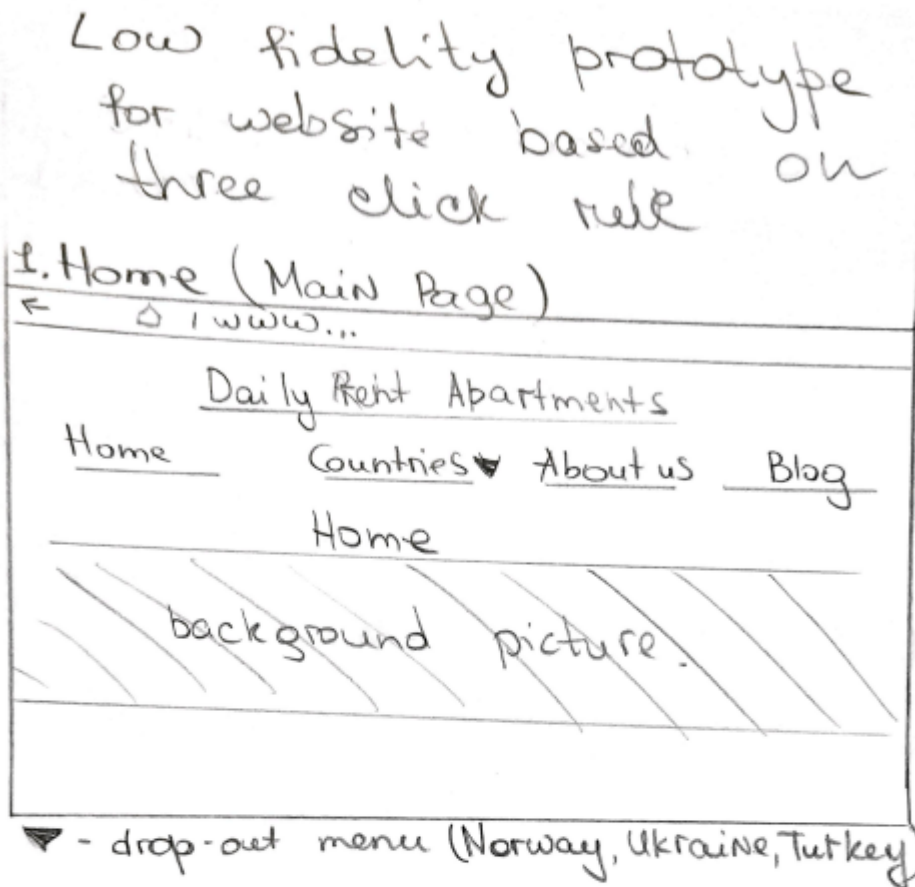 Low fidelity prototype
for website based on
three click rule
1. Home (Main Page)
www...
Daily Rent Apartments
Home Countries About us Blog
Home
background picture.
- drop-out menu (Norway, Ukraine, Turkey